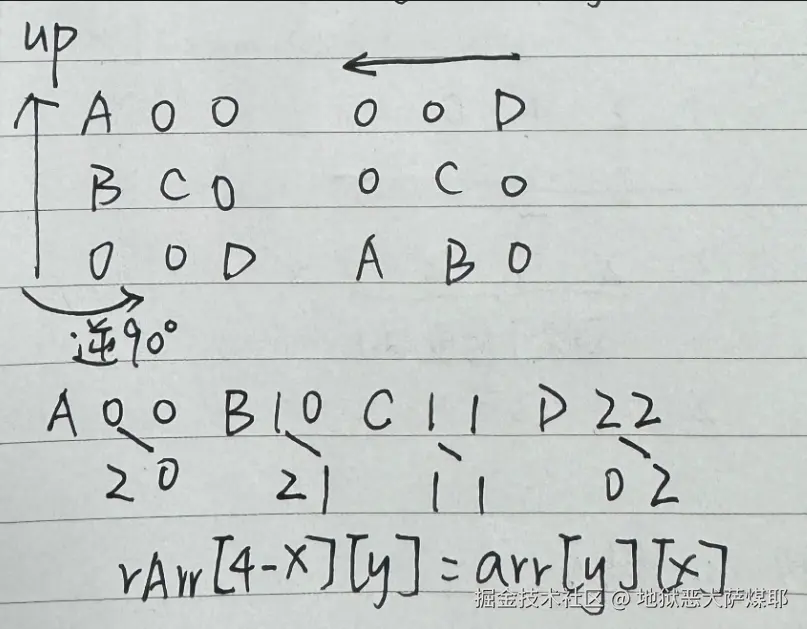 up
A 0 0 0 0 D
B C 0 0 C 0
0 0 D A B 0
逆90°
A 0 0 B 1 0 C 1 1 D 2 2
2 0 2 1 1 1 0 2
rArr[4-x][y]=arr[y][x]
掘金技术社区 @ 地狱恶犬萨煤耶